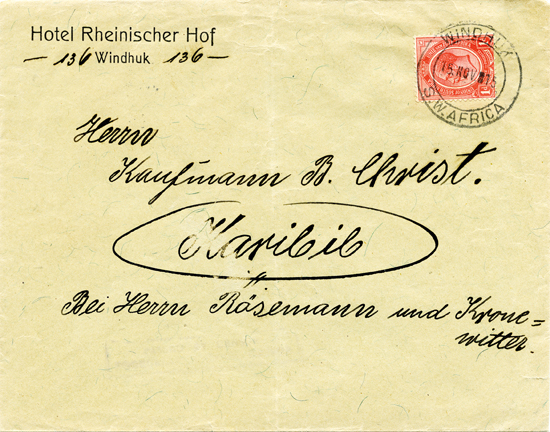 Hotel Rheinischer Hof
— 136 Windhuk 136 —
WINDHUK
15 NOV
S.W.AFRICA
Herrn
Kaufmann B. Christ.
Karibib
Bei Herrn Rösemann und Krone-
witter.